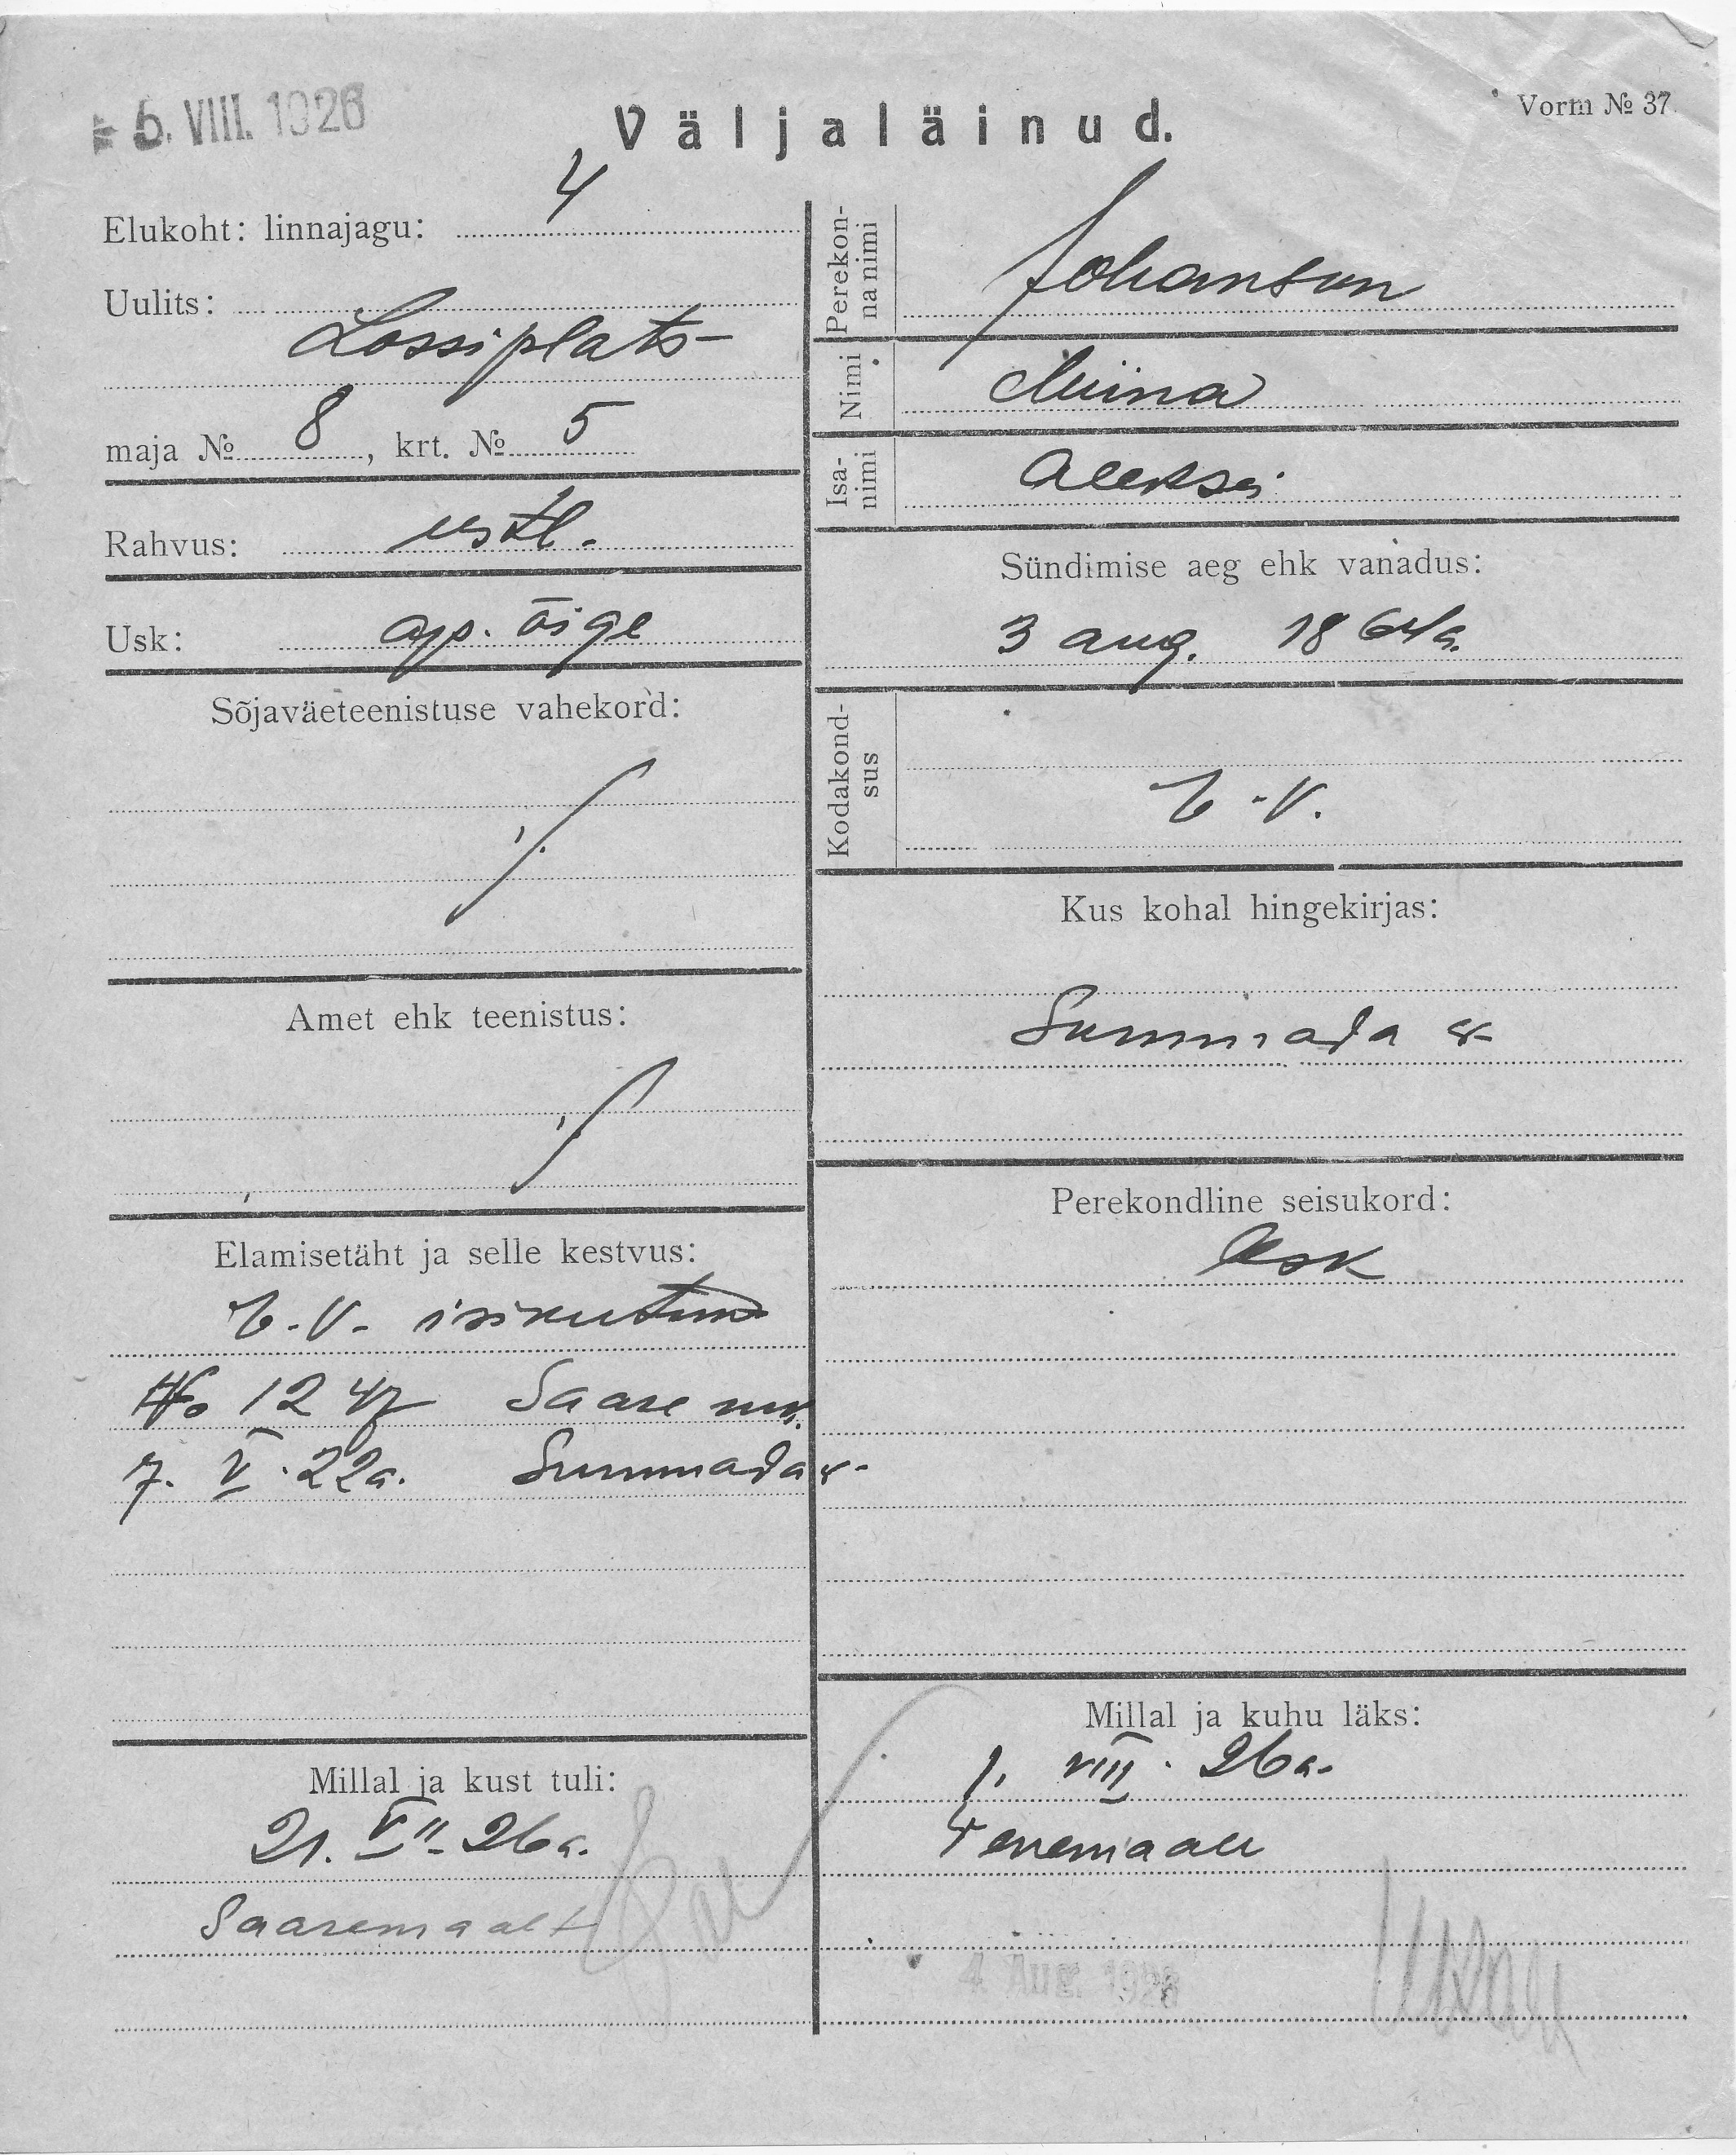 5. VIII. 1926
Väljaläinud.
Vorm № 37.
Elukoht: linnajagu: 4
Uulits:
Lossiplats-
maja № 8, krt. № 5
Rahvus: estl.
Usk: ap. õige
Sõjaväeteenistuse vahekord:
Amet ehk teenistus:
Elamisetäht ja selle kestvus:
E.V. isikutun
No 1247 Saare mk.
7. V. 22a. Summada v.
Millal ja kust tuli:
21. VII. 26a.
Saaremaalt
Perekonna nimi
Johanson
Nimi
Miina
Isanimi
Aleksei
Sündimise aeg ehk vanadus:
3 aug. 1864a.
Kodakondsus
E.V.
Kus kohal hingekirjas:
Summada v-
Perekondline seisukord:
lesk
Millal ja kuhu läks:
1. VIII. 26a.
Venemaale
4 Aug. 1926